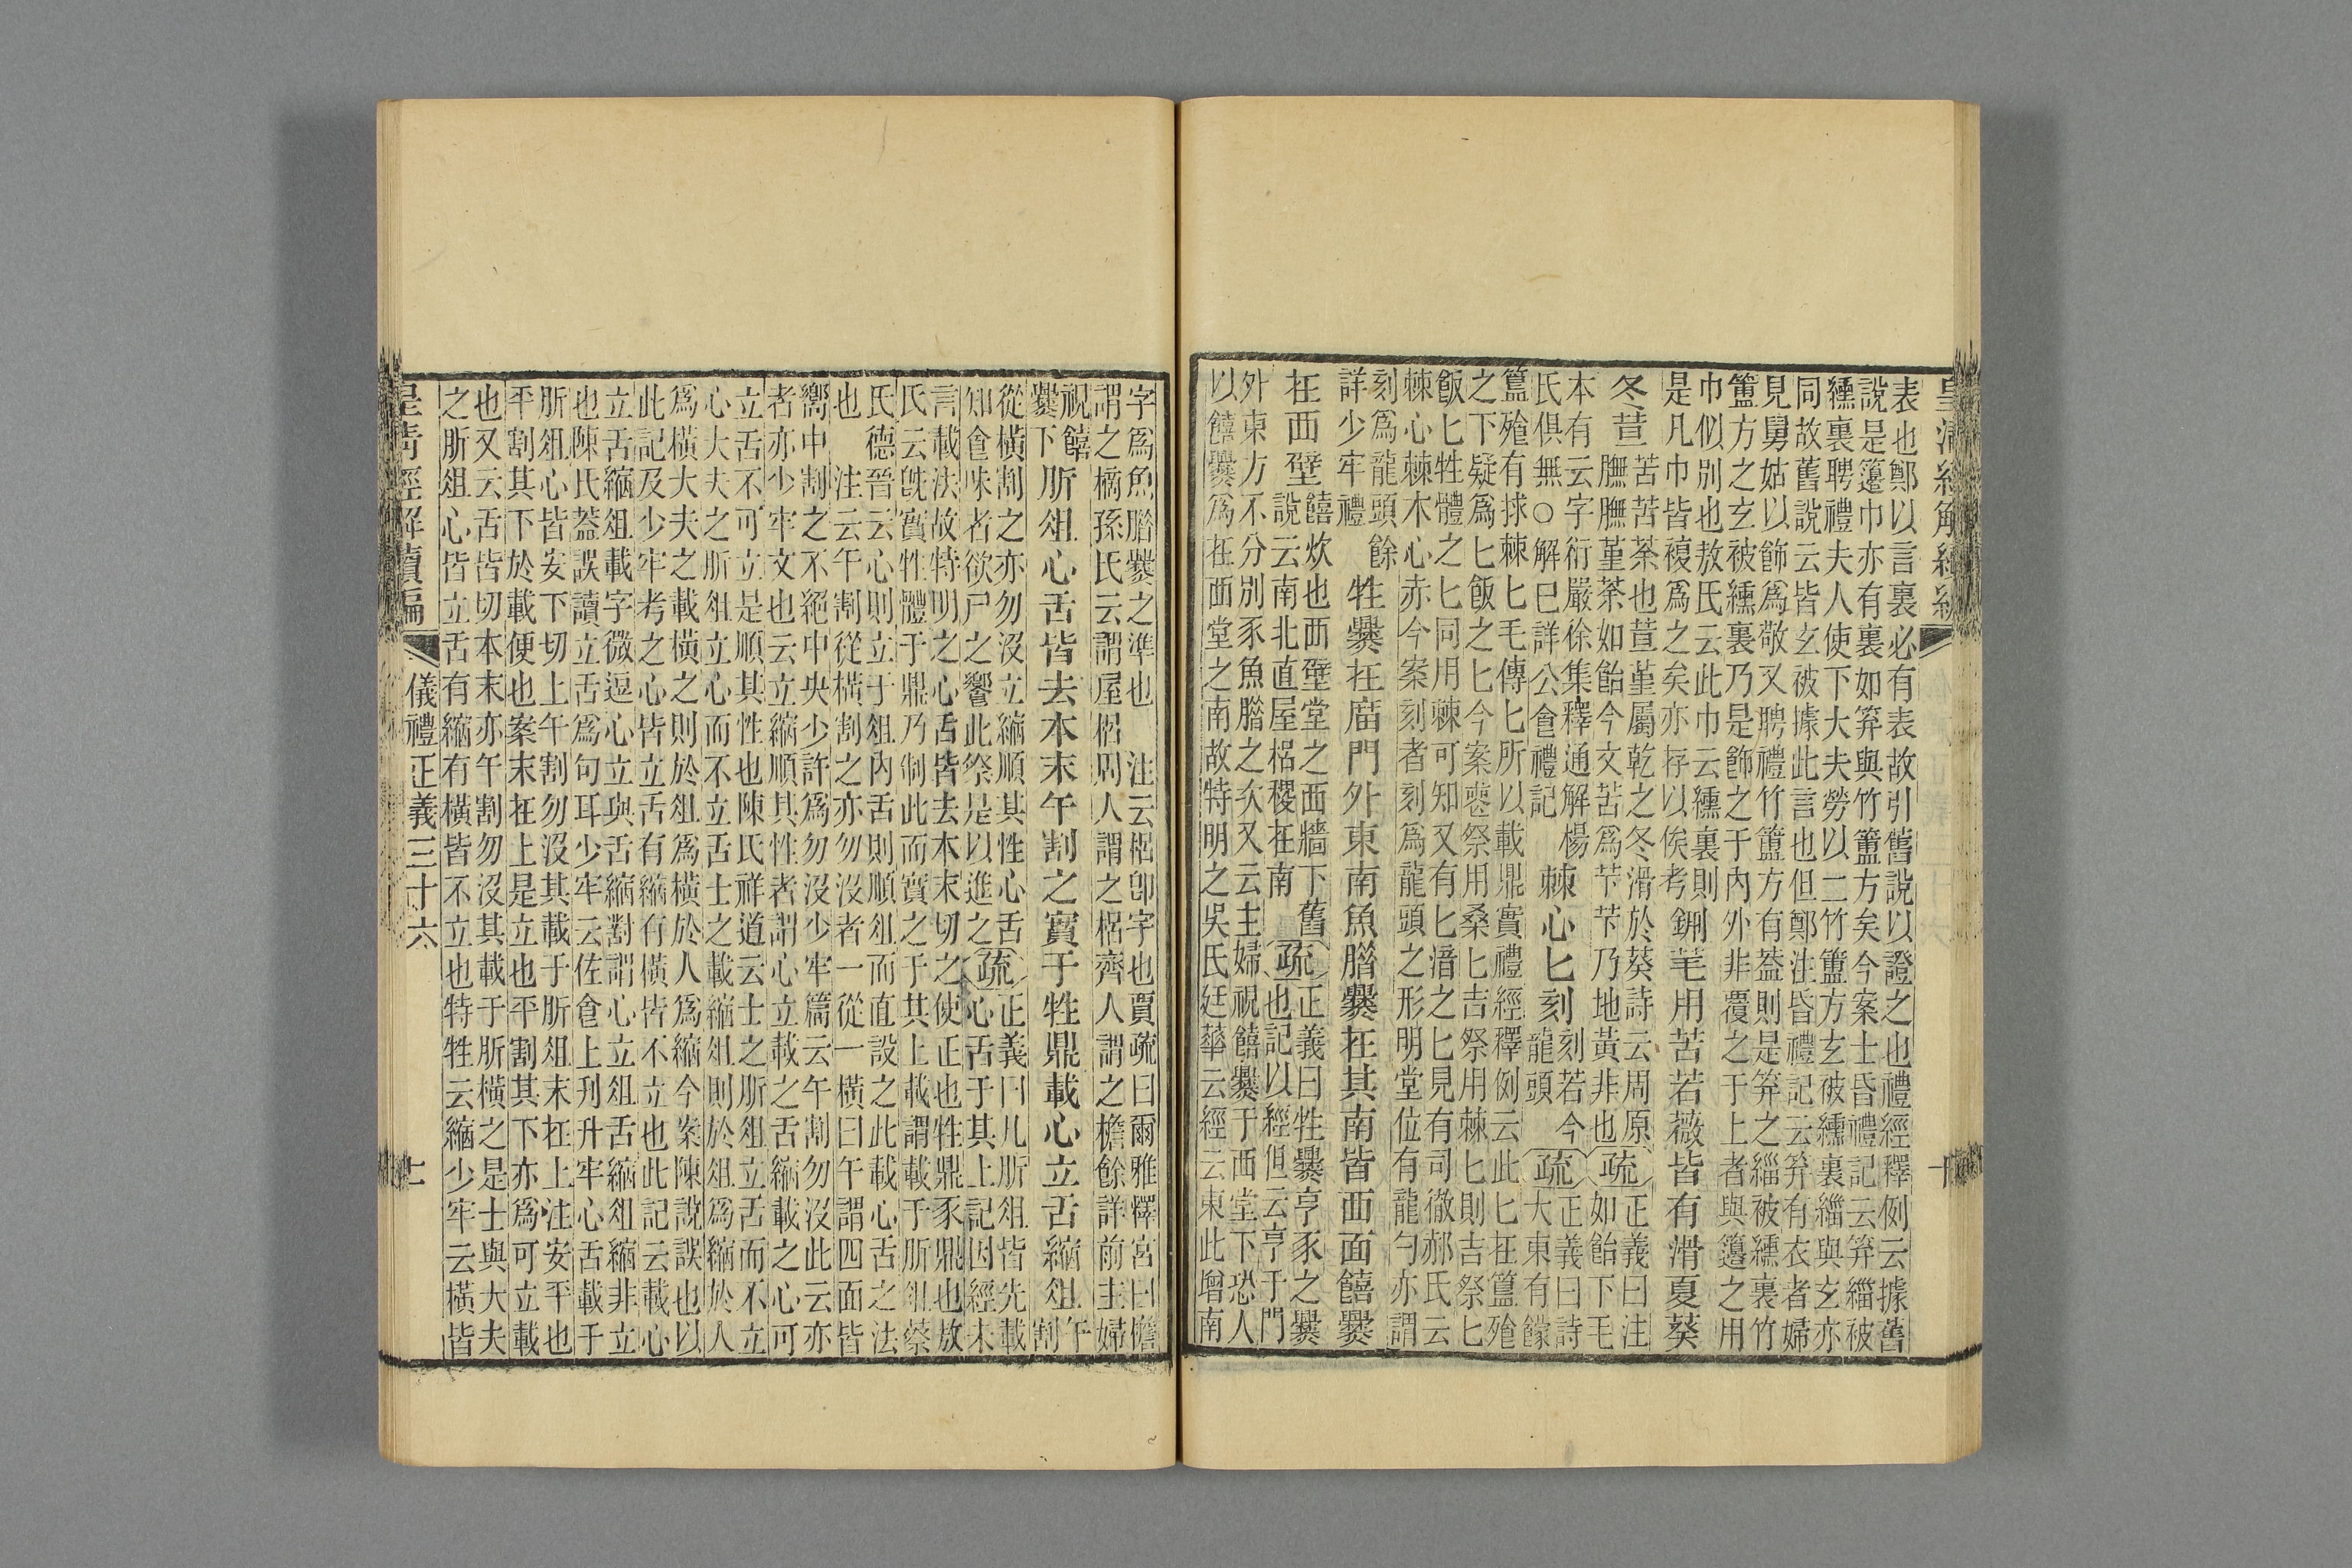 皇清經解續編
十
表也鄭以言裏必有表故引舊說以證之也禮經釋例云據舊
說是籩巾亦有裏如笲與竹簠方矣今案士昏禮記云笲緇被
纁裏聘禮夫人使下大夫勞以二竹簠方玄被纁裏緇與玄亦
同故舊說云皆玄被據此言也但鄭注昏禮記云笲有衣者婦
見舅姑以飾爲敬又聘禮竹簠方有葢則是笲之緇被纁裏竹
簠方之玄被纁裏乃是飾之于內外非覆之于上者與籩之用
巾似別也敖氏云此巾云纁裏則
是凡巾皆複爲之矣亦存以俟考
鉶芼用苦若薇皆有滑夏葵
冬荁
苦苦荼也荁堇屬乾之冬滑於葵詩云周原
膴膴堇荼如飴今文苦爲苄苄乃地黃非也
疏
正義曰注
如飴下毛
本有云字衍嚴徐集釋通解楊
氏俱無○解巳詳公食禮記
棘心匕刻
刻若今
龍頭
疏
正義曰詩
大東有饛
簋飱有捄棘匕毛傳匕所以載鼎實禮經釋例云此匕在簋飱
之下疑爲匕飯之匕今案䘮祭用桑匕吉祭用棘匕則吉祭匕
飯匕牲體之匕同用棘可知又有匕湆之匕見有司徹郝氏云
棘心棘木心赤今案刻者刻爲龍頭之形明堂位有龍勺亦謂
刻爲龍頭餘
詳少牢禮
牲爨在廟門外東南魚腊爨在其南皆西面饎爨
在西壁
饎炊也西壁堂之西牆下舊
說云南北直屋梠稷在南
疏
正義曰牲爨亨豕之爨
也記以經但云亨于門
外東方不分別豕魚腊之次又云主婦視饎爨于西堂下恐人
以饎爨爲在西堂之南故特明之吳氏廷華云經云東此增南
字爲魚腊爨之準也 注云梠卽字也賈疏曰爾雅釋宮曰檐
謂之樀孫氏云謂屋梠周人謂之梠齊人謂之檐餘詳前主婦
視饎
爨下
肵俎心舌皆去本末午割之實于牲鼎載心立舌縮俎
午
割
從橫割之亦勿沒立縮順其性心舌
知食味者欲尸之饗此祭是以進之
疏
正義曰凡肵俎皆先載
心舌于其上記因經未
言載法故特明之心舌皆去本末切之使正也牲鼎豕鼎也敖
氏云旣實牲體于鼎乃制此而實之于其上載謂載于肵俎蔡
氏德晉云心則立于俎內舌則順俎而直設之此載心舌之法
也 注云午割從橫割之亦勿沒者一從一橫曰午謂四面皆
嚮中割之不絕中央少許爲勿沒少牢篇云午割勿沒此云亦
者亦少牢文也云立縮順其性者謂心立載之舌縮載之心可
立舌不可立是順其性也陳氏祥道云士之肵俎立舌而不立
心大夫之肵俎立心而不立舌士之載縮俎則於俎爲縮於人
爲橫大夫之載橫之則於俎爲橫於人爲縮今案陳說誤也以
此記及少牢考之心皆立舌有縮有橫皆不立也此記云載心
立舌縮俎載字微逗心立與舌縮對謂心立俎舌縮俎縮非立
也陳氏葢誤讀立舌爲句耳少牢云佐食上利升牢心舌載于
肵俎心皆安下切上午割勿沒其載于肵俎末在上注安平也
平割其下於載便也案末在上是立也平割其下亦爲可立載
也又云舌皆切本末亦午割勿沒其載于肵橫之是士與大夫
之肵俎心皆立舌有縮有橫皆不立也特牲云縮少牢云橫皆
皇清經解續編
儀禮正義三十六